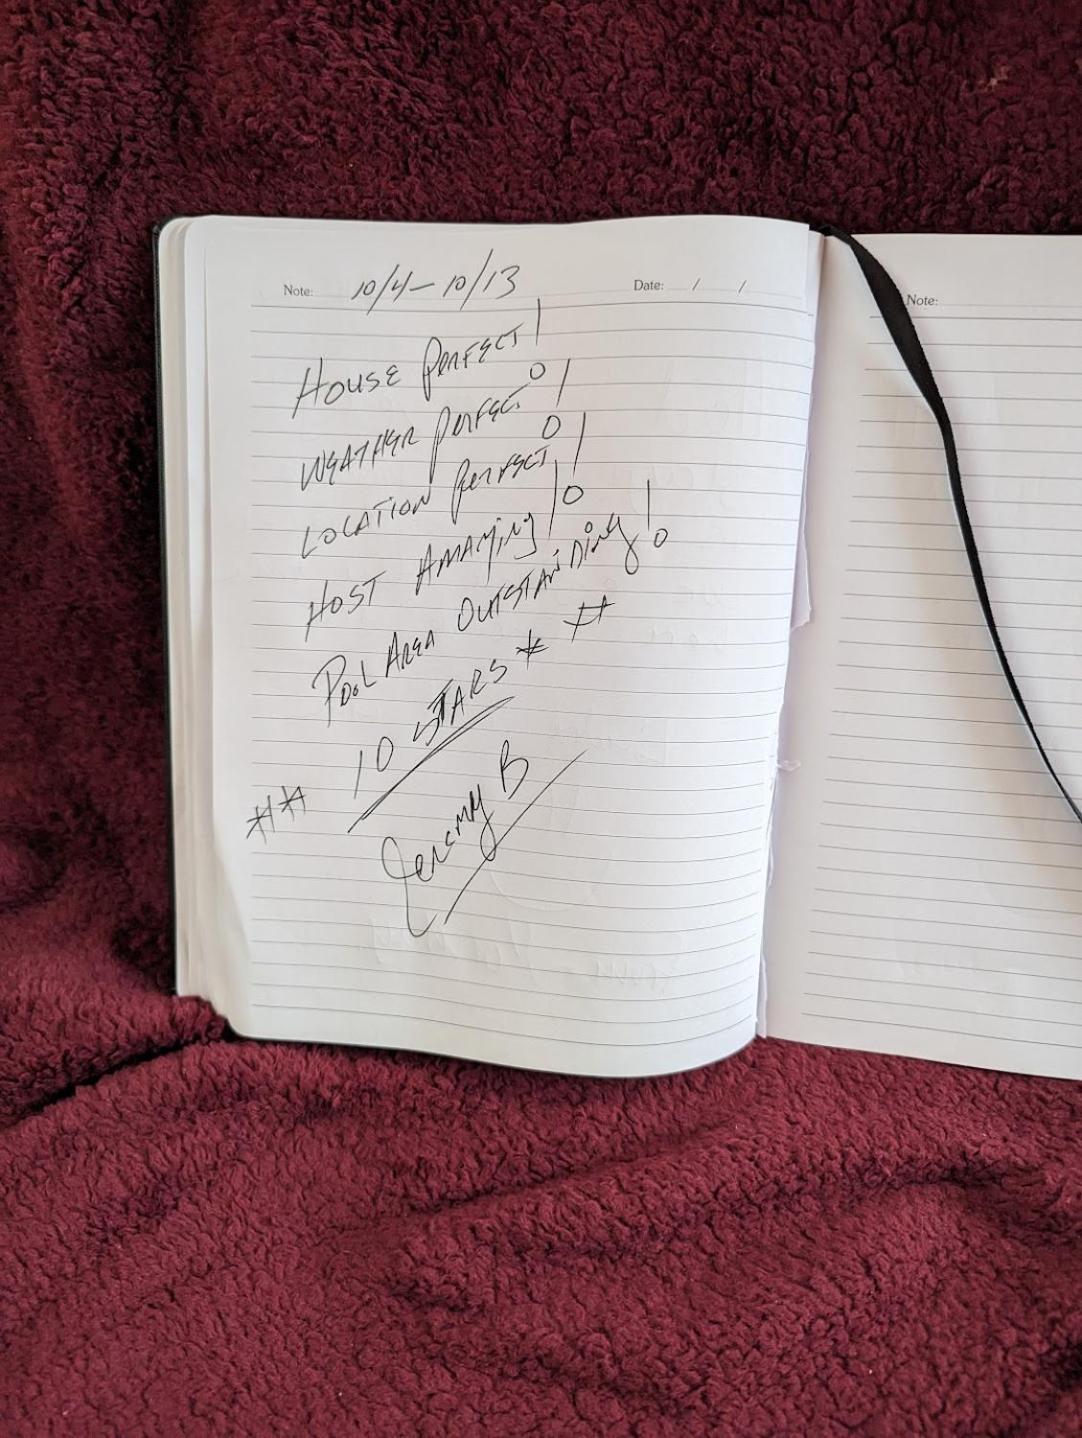 Note: 10/4 - 10/13 Date: / /
House Perfect!
Weather Perfect!
Location Perfect!
Host Amazing!
Pool Area Outstanding!
** 10 Stars **
Jeremy B
Note: